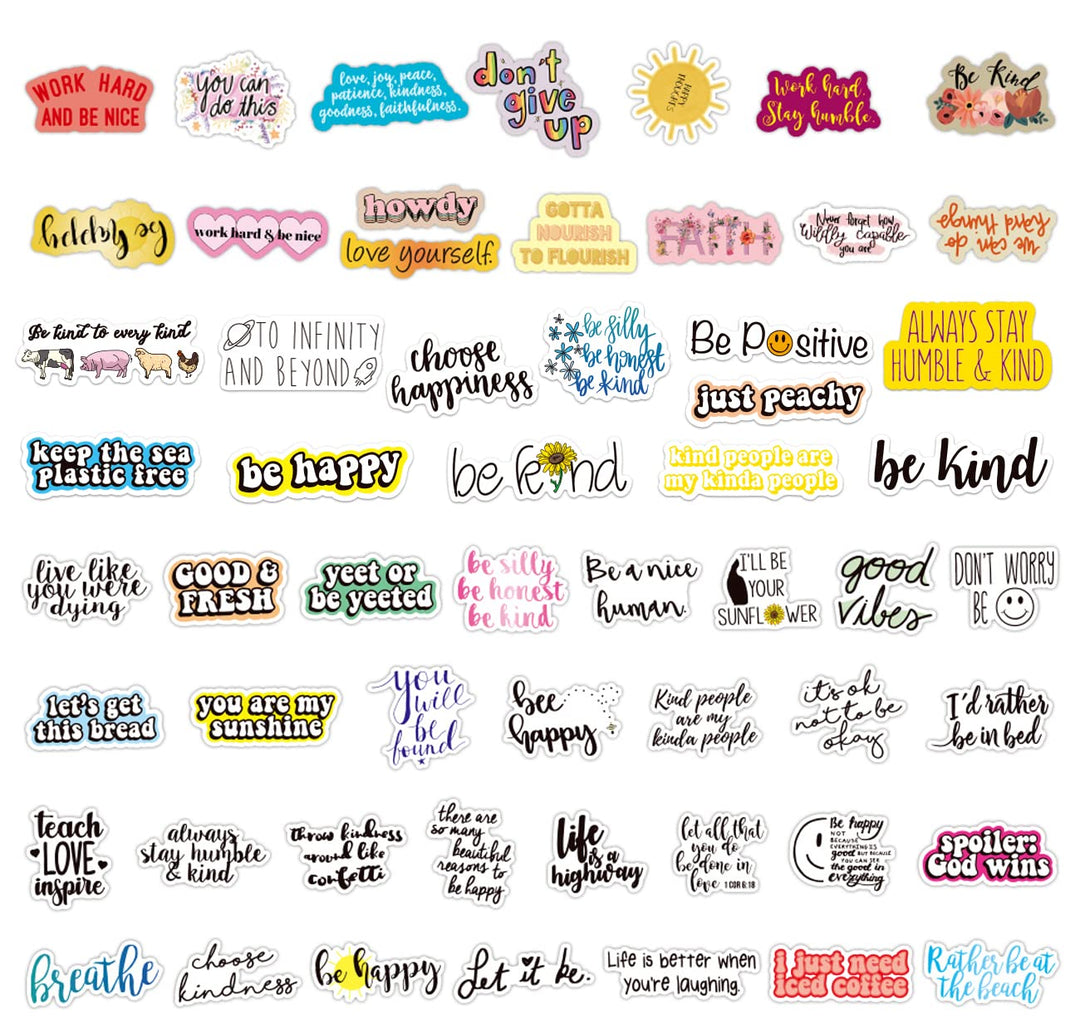 WORK HARD
AND BE NICE
you can
do this
love, joy, peace,
patience, kindness,
goodness, faithfulness.
don't
give
up
HAPPY
THOUGHTS
Work hard.
Stay humble.
Be Kind
Be Happy
work hard & be nice
howdy
love yourself.
GOTTA
NOURISH
TO FLOURISH
FAITH
Never forget how
Wildly capable
you are
we can do
hard things
Be kind to every kind
TO INFINITY
AND BEYOND
choose
happiness
be silly
be honest
be kind
Be Positive
just peachy
ALWAYS STAY
HUMBLE & KIND
keep the sea
plastic free
be happy
be kind
kind people are
my kinda people
be kind
live like
you were
dying
GOOD &
FRESH
yeet or
be yeeted
be silly
be honest
be kind
Be a nice
human.
I'LL BE
YOUR
SUNFLOWER
good
vibes
DON'T WORRY
BE
let's get
this bread
you are my
sunshine
you
will
be
found
bee
happy
Kind people
are my
kinda people
it's ok
not to be
okay
I'd rather
be in bed
teach
LOVE
inspire
always
stay humble
& kind
throw kindness
around like
confetti
there are
so many
beautiful
reasons to
be happy
life
is a
highway
let all that
you do
be done in
love 1 COR 6:18
Be happy
NOT
BECAUSE
EVERYTHING IS
good BUT BECAUSE
YOU CAN SEE
the good in
everything
spoiler:
God wins
breathe
choose
kindness
be happy
Let it be.
Life is better when
you're laughing.
i just need
iced coffee
Rather be at
the beach